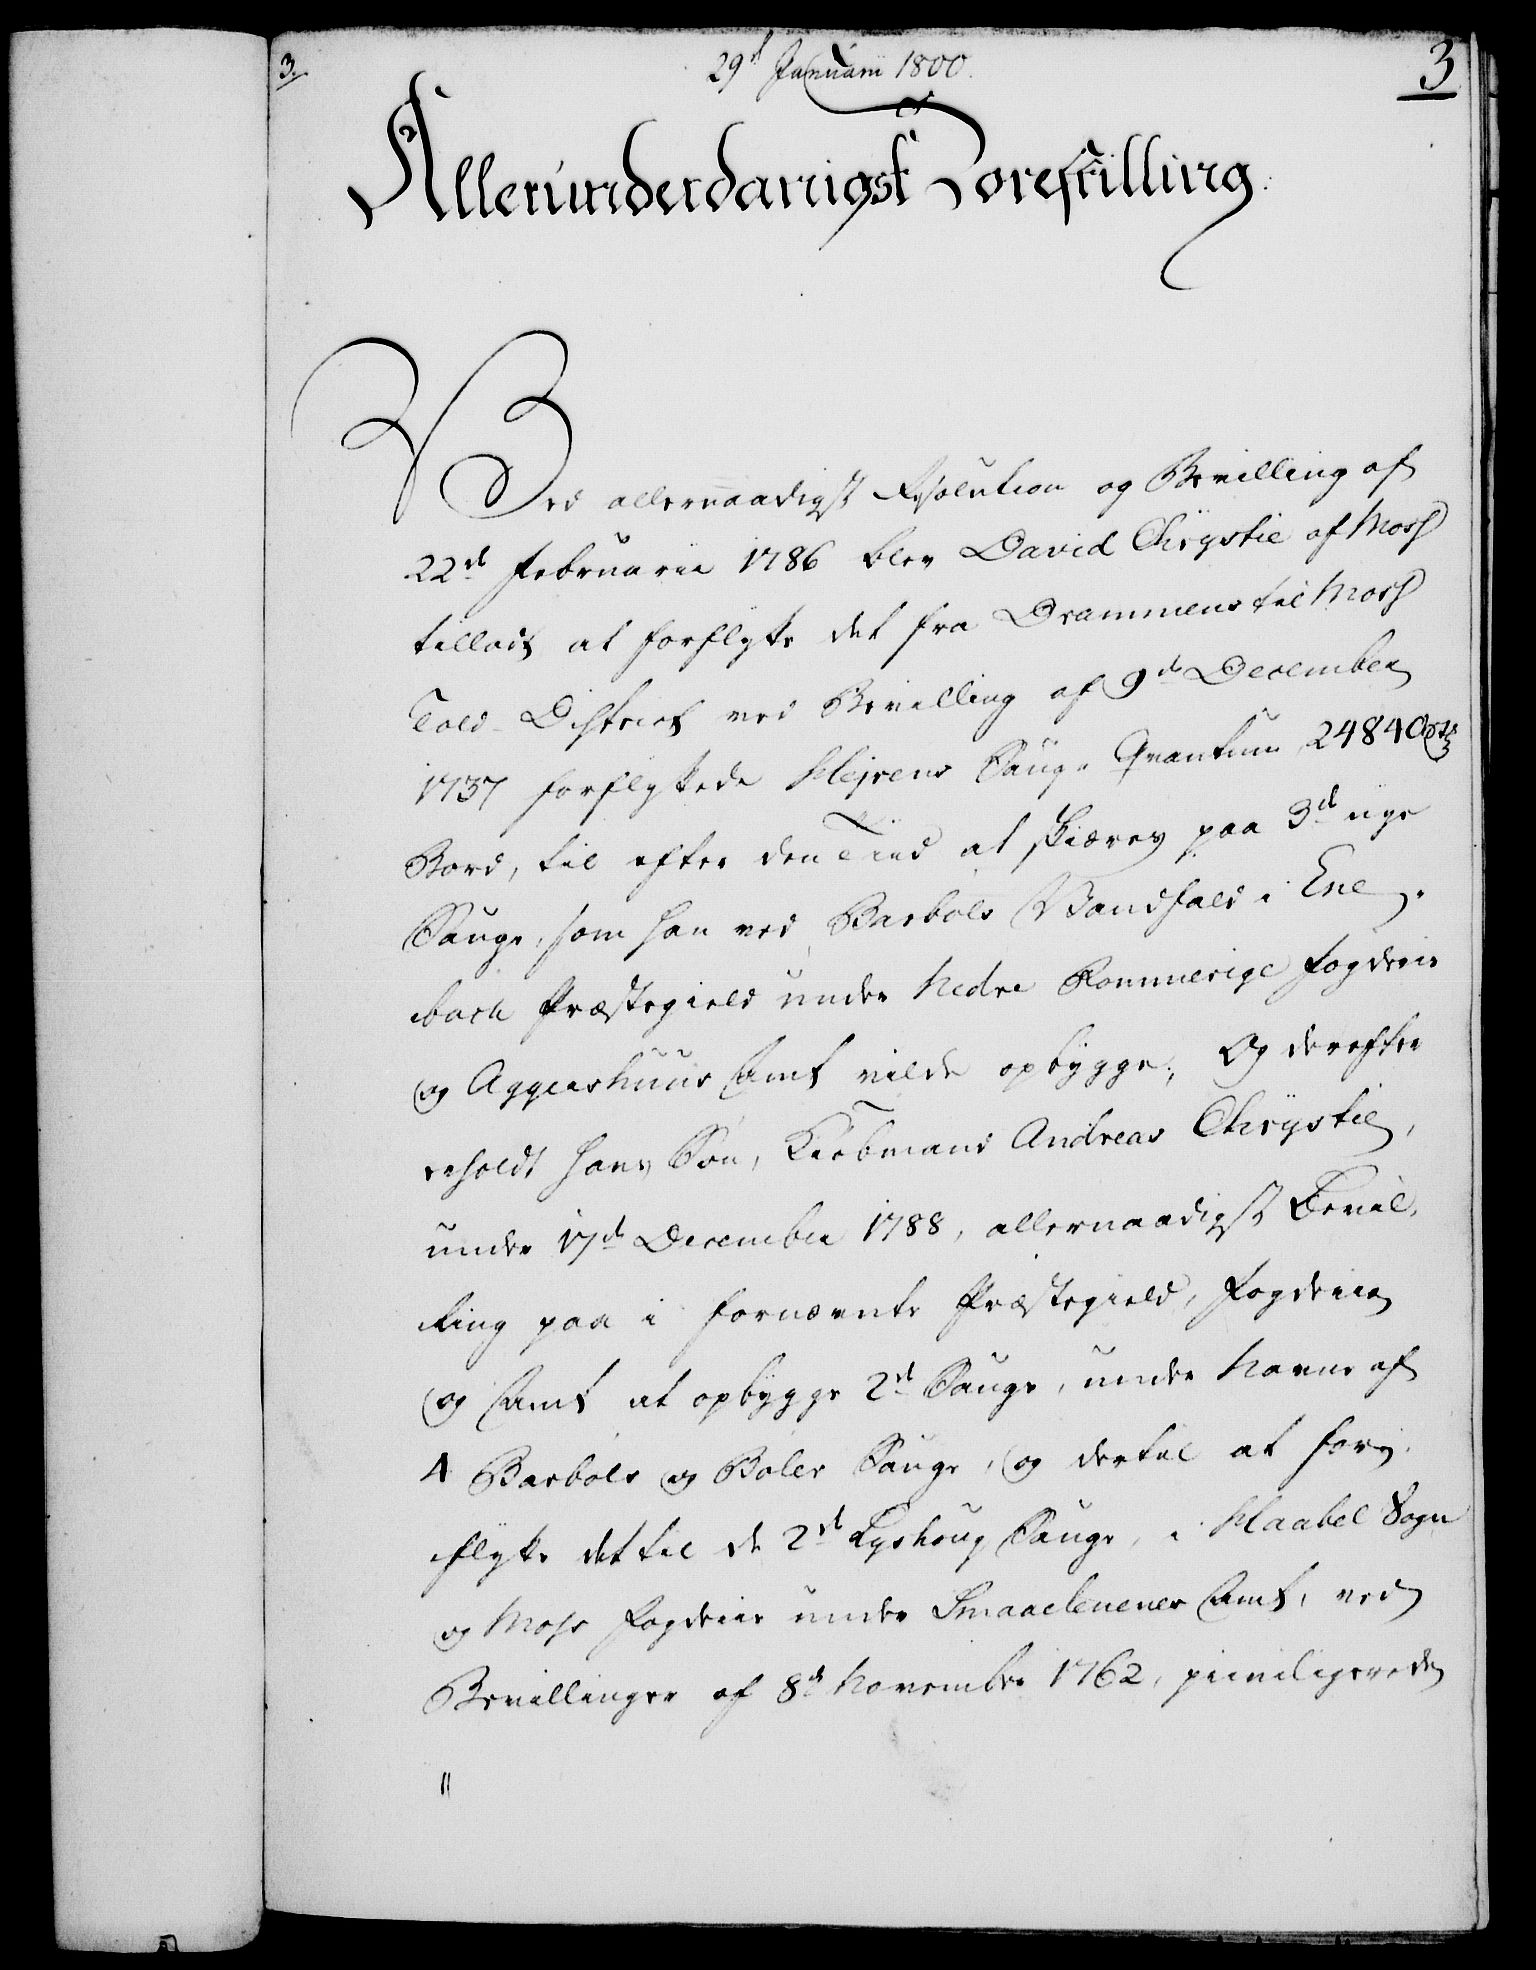 3.
29d Januarii 1800.
3
Allerunderdanigst Forestilling.
Ved allernaadigst Resolution og Bevilling af
22d Februarii 1786 blev David Chrystie af Moss
tilladt at forflytte det fra Drammens til Moss
Told-District ved Bevilling af 9d December
1737 forflyttede Klejvens Saug-Qvantum 2484
Bord, til efter den Tiid at skiæres paa 3d nye
Sauge, som han ved Barbøls Vandfald i Ene-
bach Præstegield under Nedre Rommerige Fogderie
og Aggershuus Amt vilde opbygge; Og derefter
erholdt hans Søn, Kiøbmand Andreas Chrystie,
under 17d December 1788, allernaadigst Bevil-
ling paa i fornævnte Præstegield, Fogderie
og Amt at opbygge 2d Sauge, under Navne af
4 Barbøls og Bøler Sauge, og dertil at for-
flytte det til de 2d Lyshoug Sauge, i Haabel Sogn
og Moss Fogderie under Smaaelenenes Amt, ved
Bevillinger af 8d November 1762, privilegerede